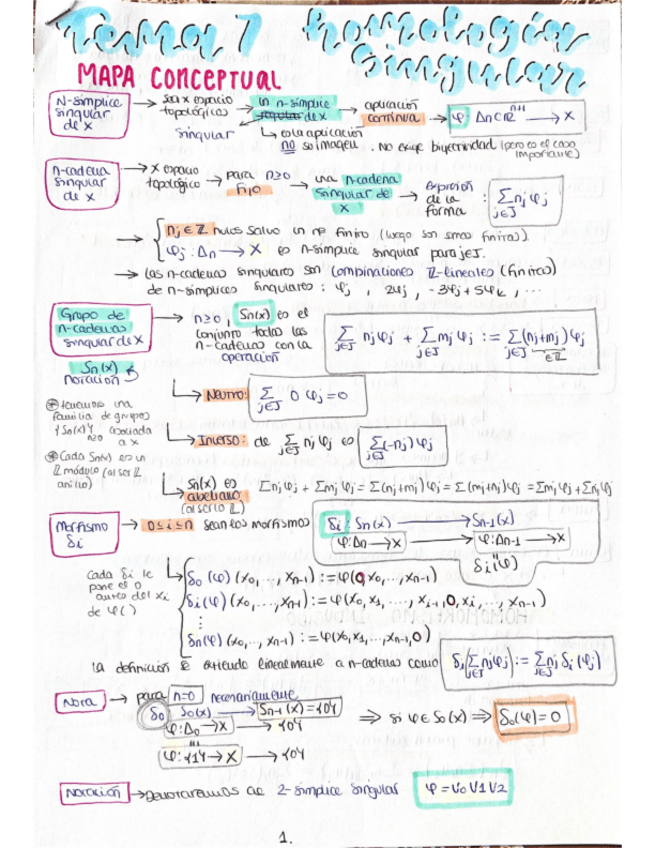 Tema 7 homología singular
MAPA CONCEPTUAL
N-símplice singular de X → sea X espacio topológico → un n-símplice singular de X → aplicación continua → φ: Δn⊂ℝⁿ⁺¹ → X
↳ es la aplicación no su imagen. No exige biyectividad (pero es el caso importante)
n-cadena singular de X → X espacio topológico → para n≥0 fijo → una n-cadena singular de X → expresión de la forma : Σ_{j∈J} nj φj
→ { nj∈ℤ nulos salvo un nº finito (luego son sumas finitas).
φj : Δn → X es n-símplice singular para j∈J.
→ las n-cadenas singulares son combinaciones ℤ-lineales (finitas)
de n-símplices singulares : φj, 2φj, -3φj+5φk, ...
Grupo de n-cadenas singular de X → n≥0, Sn(X) es el conjunto todas las n-cadenas con la operación
Σ_{j∈J} nj φj + Σ_{j∈J} mj φj := Σ_{j∈J} (nj+mj) φj
∈ℤ
Sn(X) notación
→ Neutro: Σ_{j∈J} 0 φj = 0
⊛ tenemos una familia de grupos {Sn(X)}n≥0 asociada a X
→ Inverso: de Σ_{j∈J} nj φj es Σ_{j∈J} (-nj) φj
⊛ Cada Sn(X) es un ℤ módulo (al ser ℤ anillo)
→ Sn(X) es abeliano (al serlo ℤ)
Σnjφj + Σmjφj = Σ(nj+mj)φj = Σ(mj+nj)φj = Σmjφj + Σnjφj
Morfismo δi → 0≤i≤n sean los morfismos δi : Sn(X) → Sn-1(X)
φ:Δn → X → φ:Δn-1 → X
δi(φ)
Cada δi le pone el 0 antes del xi de φ()
δ0(φ)(x0,...,xn-1) := φ(0,x0,...,xn-1)
δi(φ)(x0,...,xn-1) := φ(x0,x1,...,xi-1,0,xi,...,xn-1)
⋮
δn(φ)(x0,...,xn-1) := φ(x0,x1,...,xn-1,0)
la definición se extiende linealmente a n-cadenas como δi(Σ_{j∈J} njφj) := Σ_{j∈J} nj δi(φj)
Nota → para n=0 necesariamente
δ0 S0(X) → Sn-1(X)={0}
φ:Δ0 → X → {0}
⇒ si φ∈S0(X) ⇒ δ0(φ)=0
φ:{1} → X → {0}
Notación → Denotaremos al 2-símplice singular φ = V0 V1 V2
1.